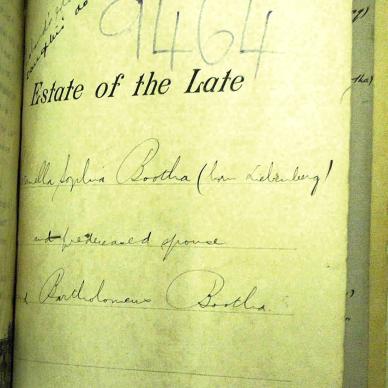 9464
Estate of the Late
Sophia Bootha (born Liebenberg)
and predeceased spouse
Bartholomeus Bootha